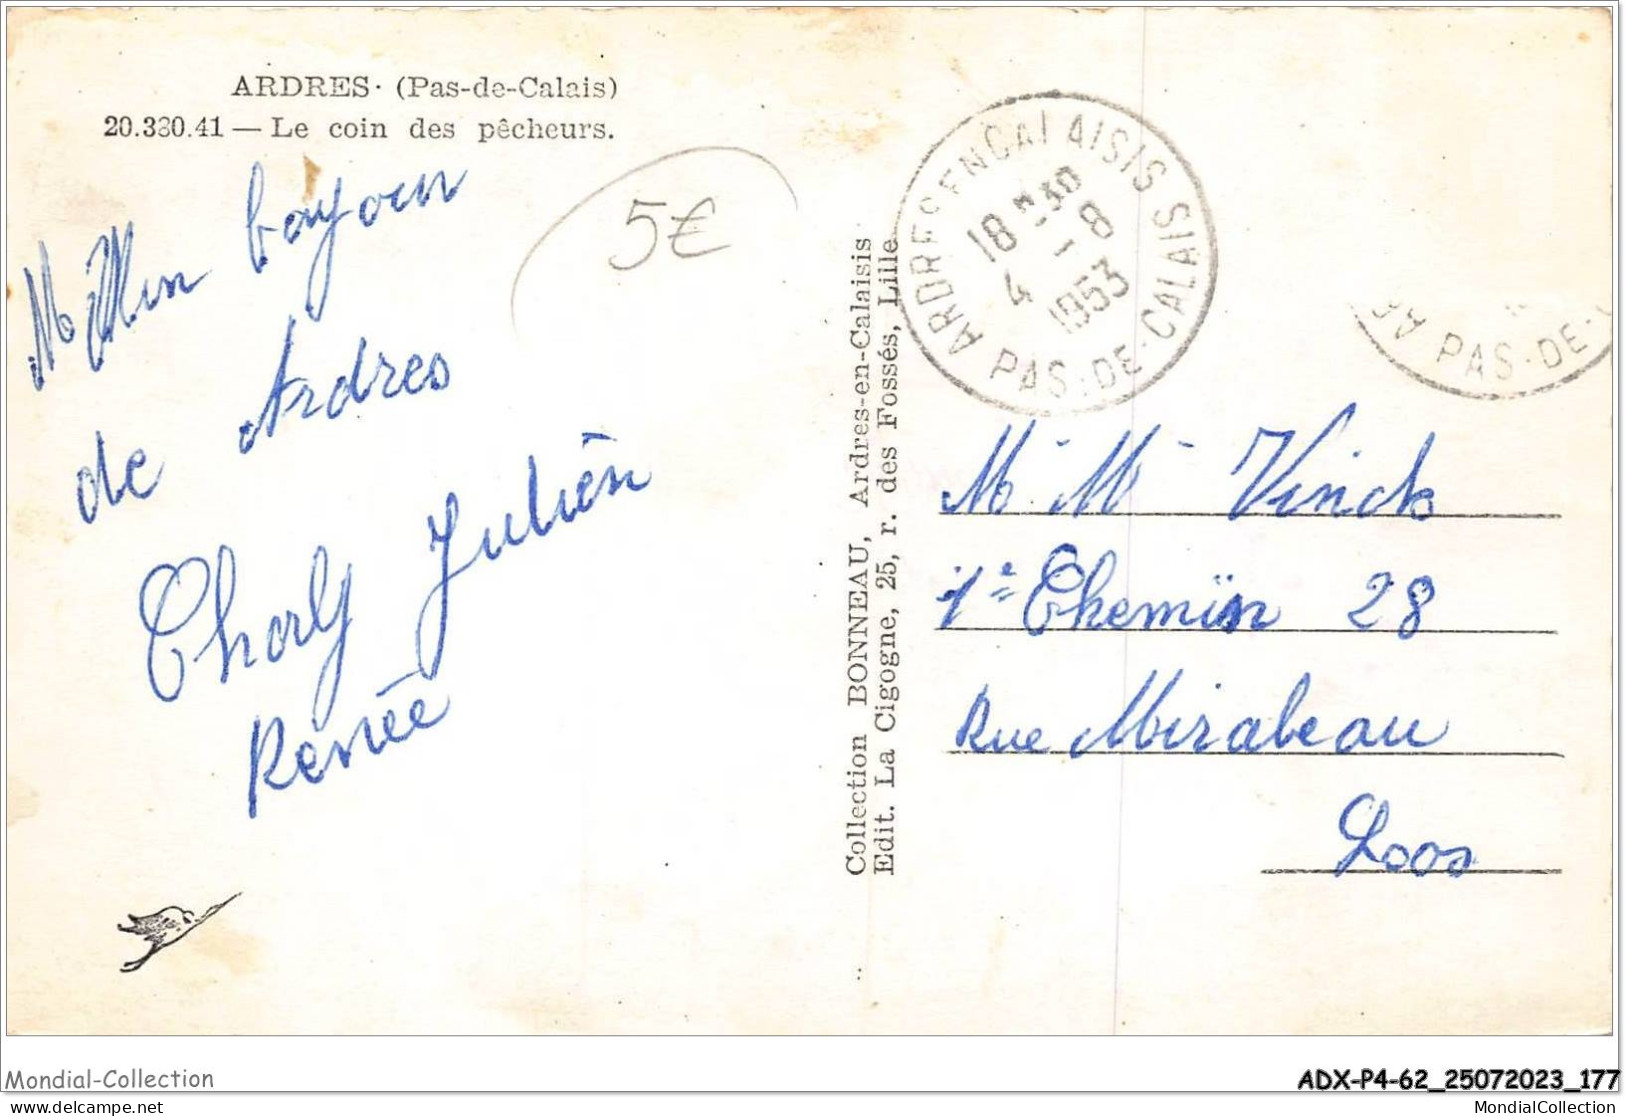 ARDRES. (Pas-de-Calais)
20.330.41 — Le coin des pêcheurs.
bonjour
de Ardres
Charly Julien
Renée
5€
Collection BONNEAU, Ardres-en-Calaisis
Edit. La Cigogne, 25, r. des Fossés, Lille
ARDRES EN CALAISIS
18 30
4 8
1953
PAS-DE-CALAIS
PAS-DE-
M. Mme Vinck
1e Chemin 28
Rue Mirabeau
Loos
Mondial-Collection
ADX-P4-62_25072023_177
www.delcampe.net
MondialCollection